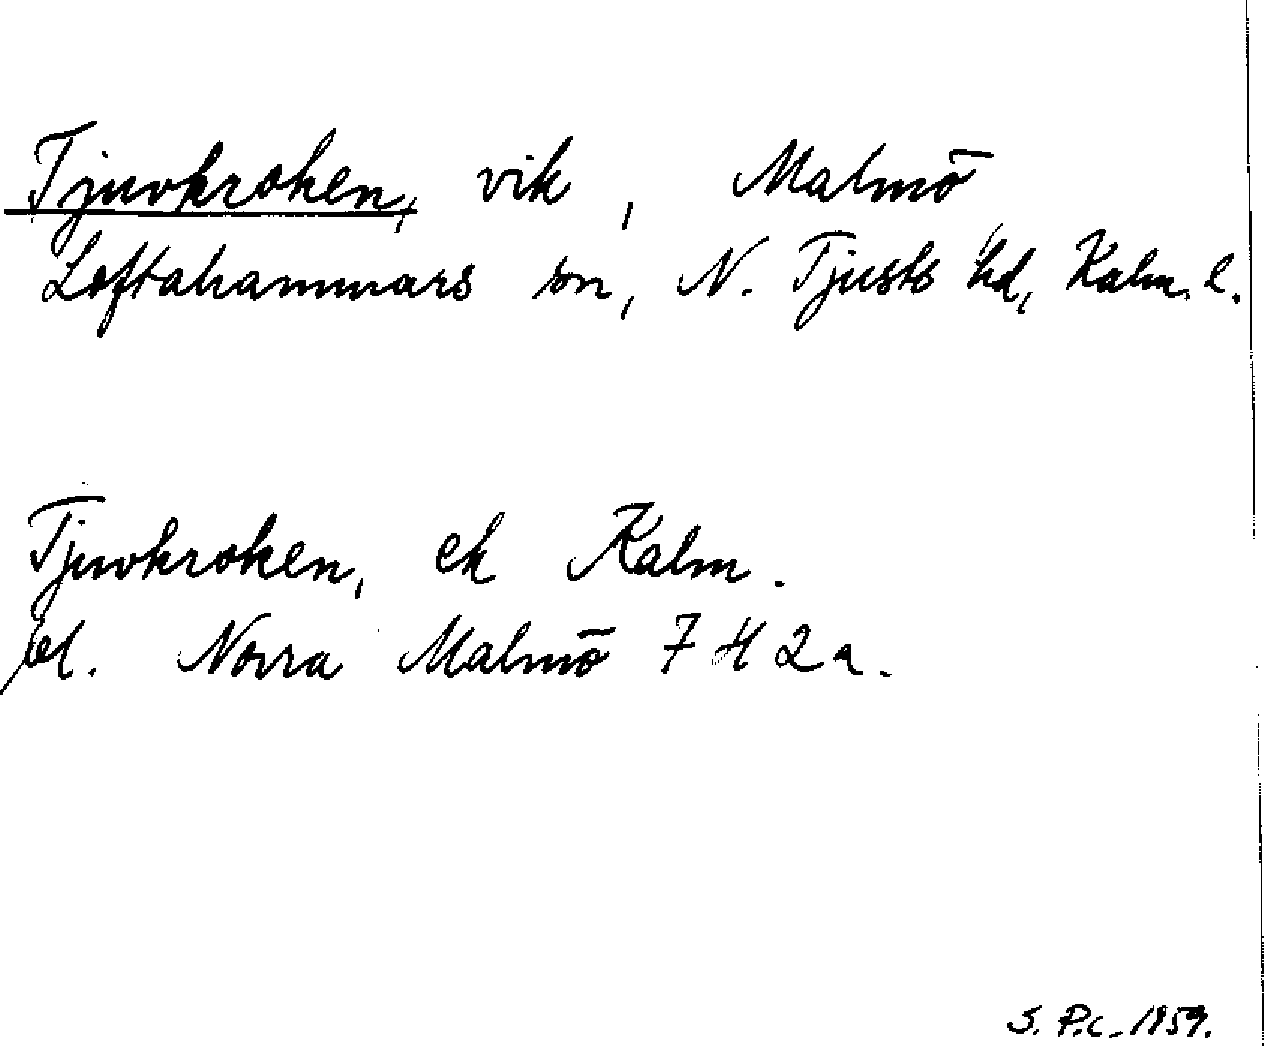 Tjuvkroken, vik, Malmö
Loftahammars sn, N. Tjusts hd, Kalm. l.
Tjuvkroken, ek Kalm.
bl. Norra Malmö 7 H 2 a.
S. P.c. 1959.